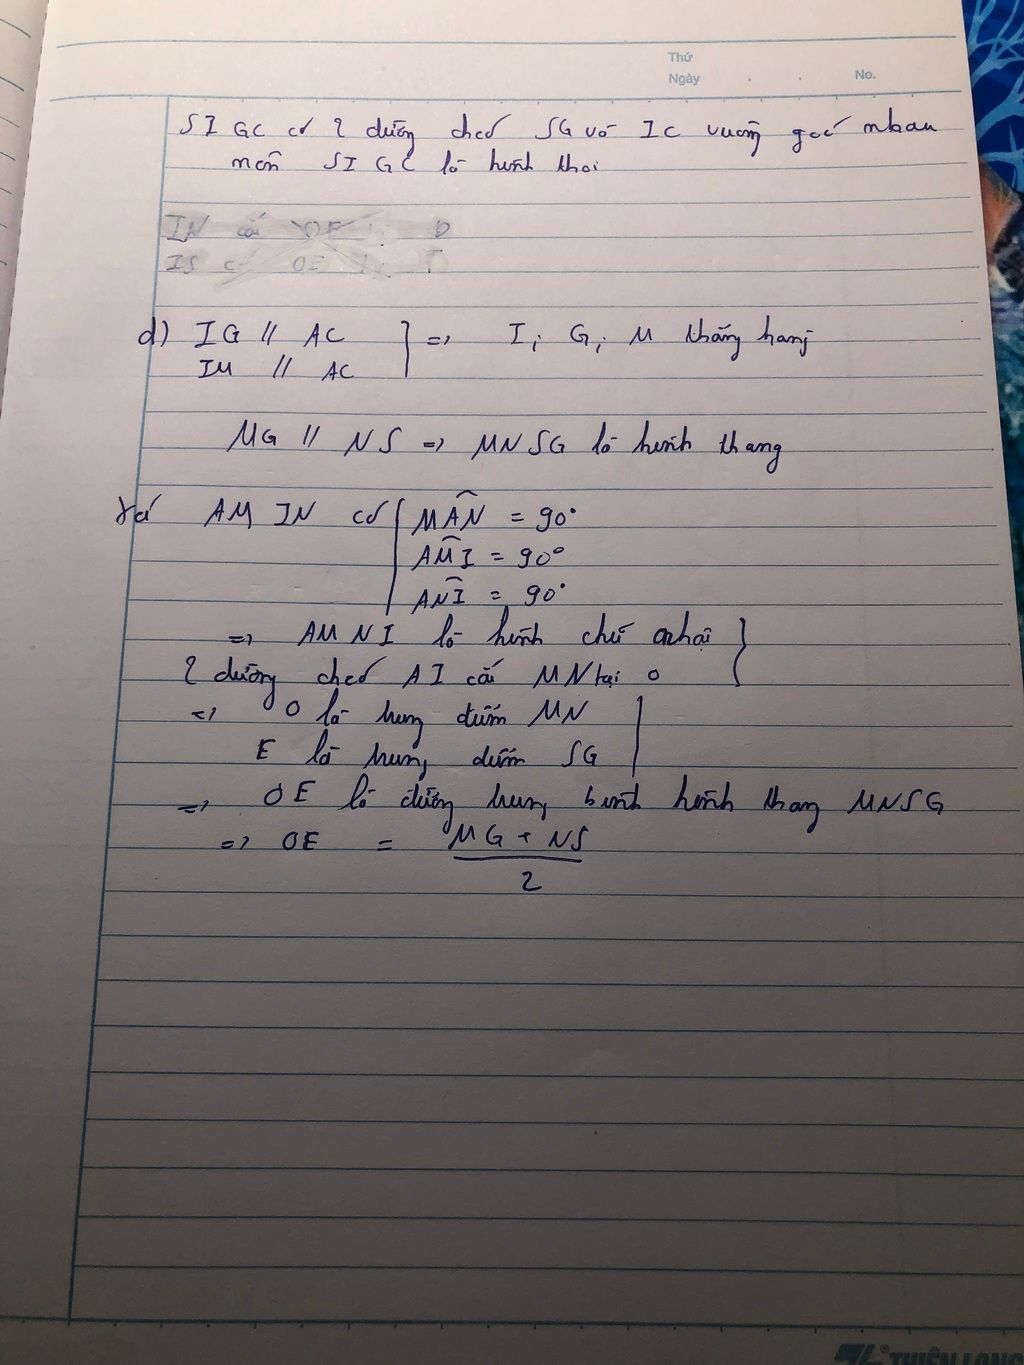 Thứ
Ngày . . No.
SI GC có 2 đường chéo SG và IC vuông góc nhau
nên SI GC là hình thoi
IN cắt OE D
IS OE
d) IG // AC => I; G; M thẳng hàng
IM // AC
MG // NS => MNSG là hình thang
AM IN có MAN = 90°
AMI = 90°
ANI = 90°
=> AMNI là hình chữ nhật
2 đường chéo AI cắt MN tại O
=> O là trung điểm MN
E là trung điểm SG
=> OE là đường trung bình hình thang MNSG
=> OE = MG + NS
2
THIÊN LONG